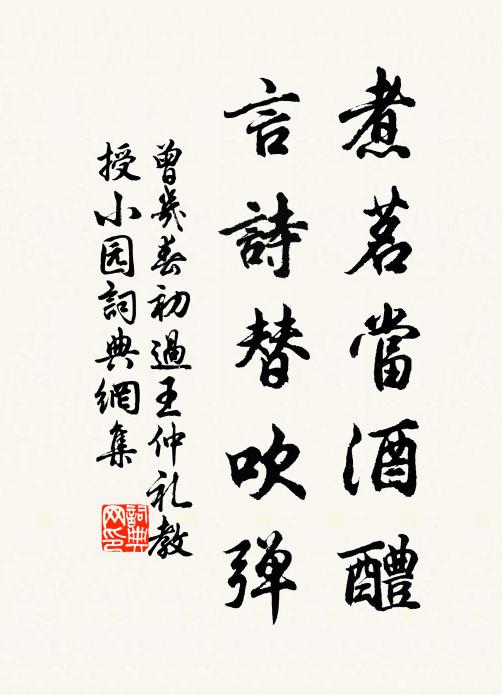 煮茗當酒醴
言詩替吹弹
曾幾春初過王仲礼教
授小园詞典網集
詞典网印